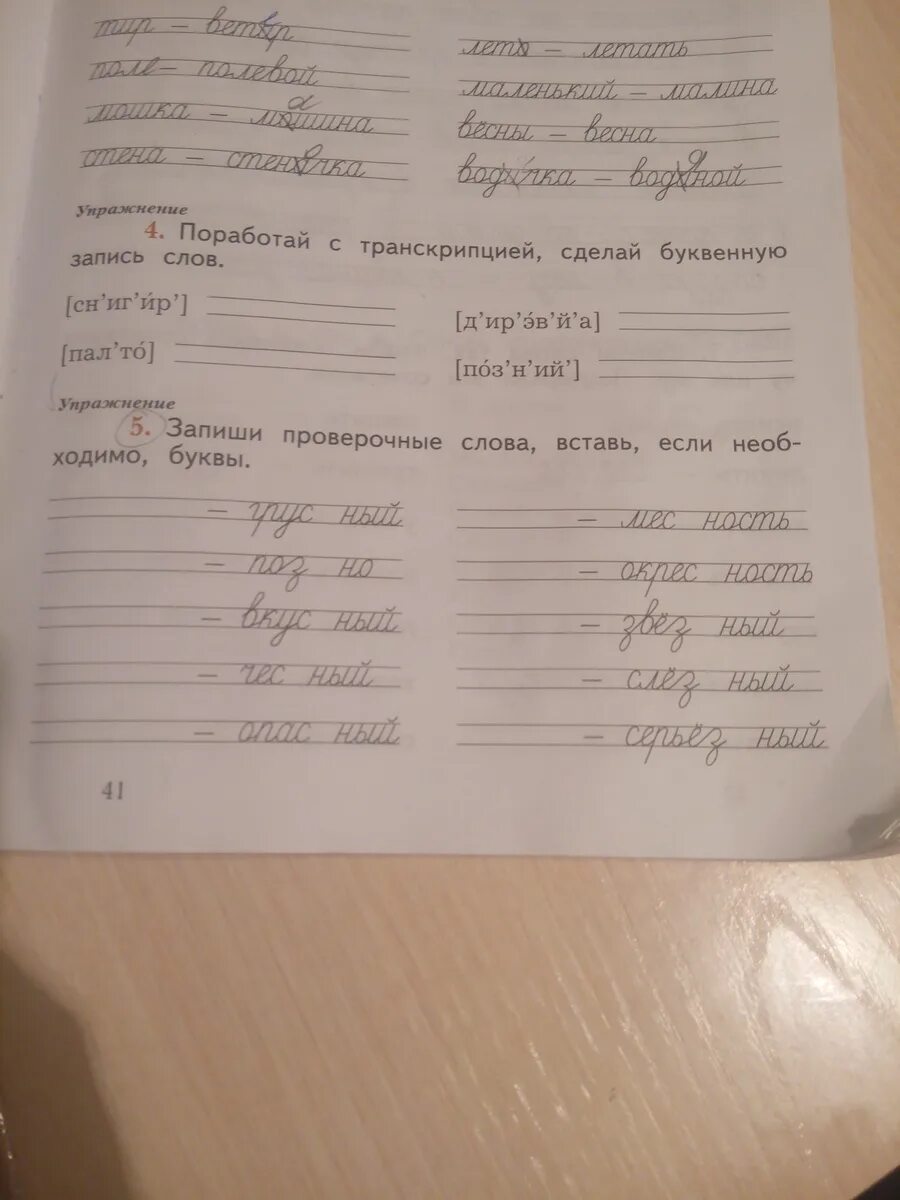 тир – ветер
поле – полевой
мошка – машина
стена – стеночка
лето – летать
маленький – малина
вёсны – весна
водичка – водяной
Упражнение
4. Поработай с транскрипцией, сделай буквенную
запись слов.
[сн’иг’и́р’]
[пал’то́]
[д’ир’э́в’й’а]
[по́з’н’ий’]
Упражнение
5. Запиши проверочные слова, вставь, если необ-
ходимо, буквы.
– грус ный
– поз но
– вкус ный
– чес ный
– опас ный
– мес ность
– окрес ность
– звёз ный
– слёз ный
– серьёз ный
41